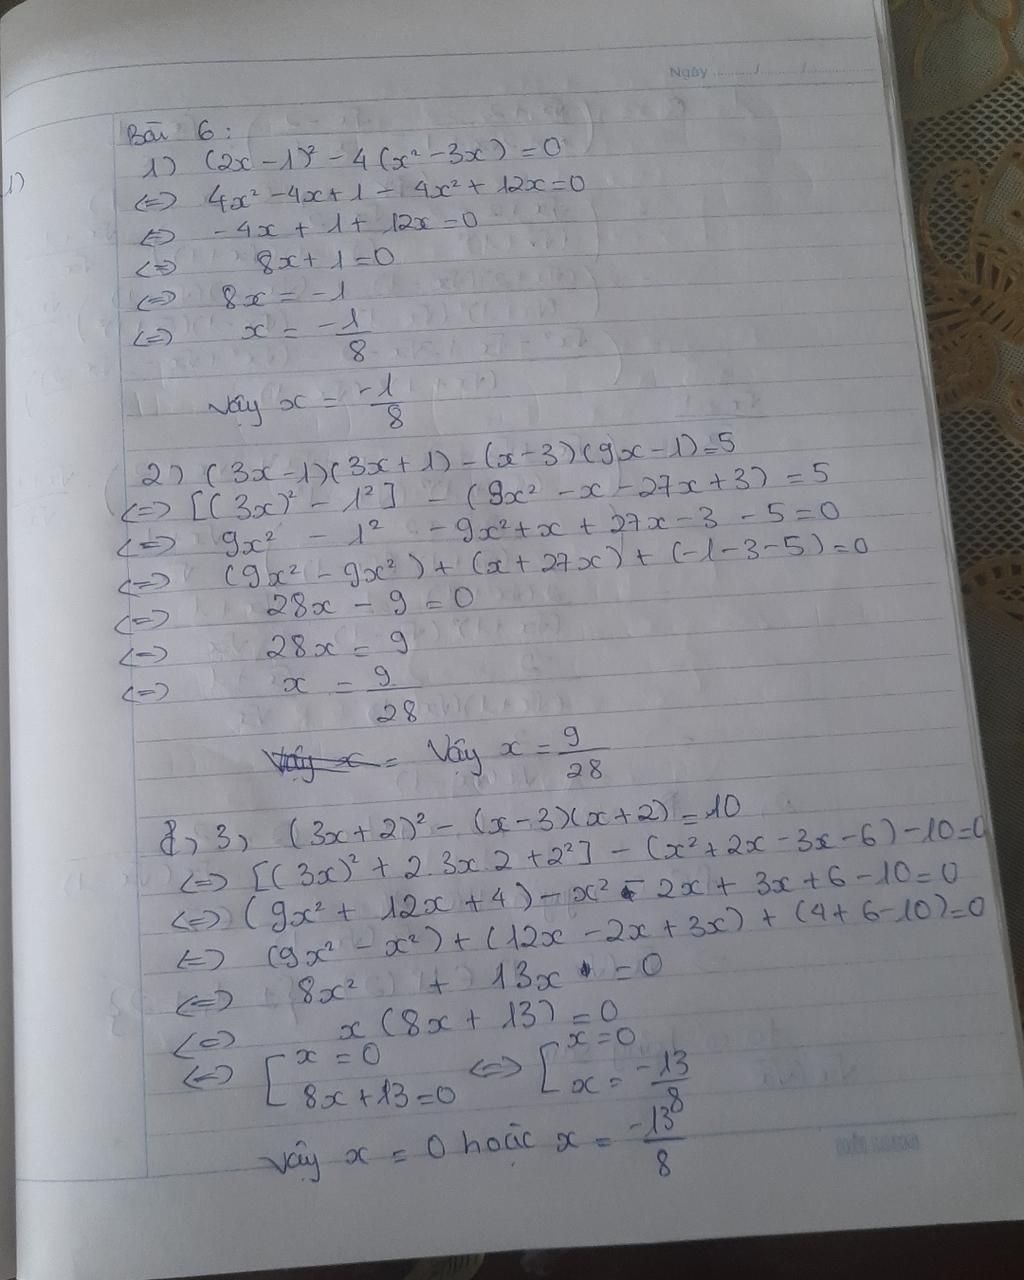 Ngày ......... / ......... / .........
1)
Bài 6:
1) (2x - 1)² - 4(x² - 3x) = 0
<=> 4x² - 4x + 1 - 4x² + 12x = 0
<=> - 4x + 1 + 12x = 0
<=> 8x + 1 = 0
<=> 8x = -1
<=> x = -1/8
Vậy x = -1/8
2) (3x - 1)(3x + 1) - (x - 3)(9x - 1) = 5
<=> [(3x)² - 1²] - (9x² - x - 27x + 3) = 5
<=> 9x² - 1² - 9x² + x + 27x - 3 - 5 = 0
<=> (9x² - 9x²) + (x + 27x) + (-1 - 3 - 5) = 0
<=> 28x - 9 = 0
<=> 28x = 9
<=> x = 9/28
Vậy x = Vậy x = 9/28
3, (3x + 2)² - (x - 3)(x + 2) = 10
<=> [(3x)² + 2.3x.2 + 2²] - (x² + 2x - 3x - 6) - 10 = 0
<=> (9x² + 12x + 4) - x² - 2x + 3x + 6 - 10 = 0
<=> (9x² - x²) + (12x - 2x + 3x) + (4 + 6 - 10) = 0
<=> 8x² + 13x = 0
<=> x (8x + 13) = 0
<=> [ x = 0 ; 8x + 13 = 0 <=> [ x = 0 ; x = -13/8
Vậy x = 0 hoặc x = -13/8